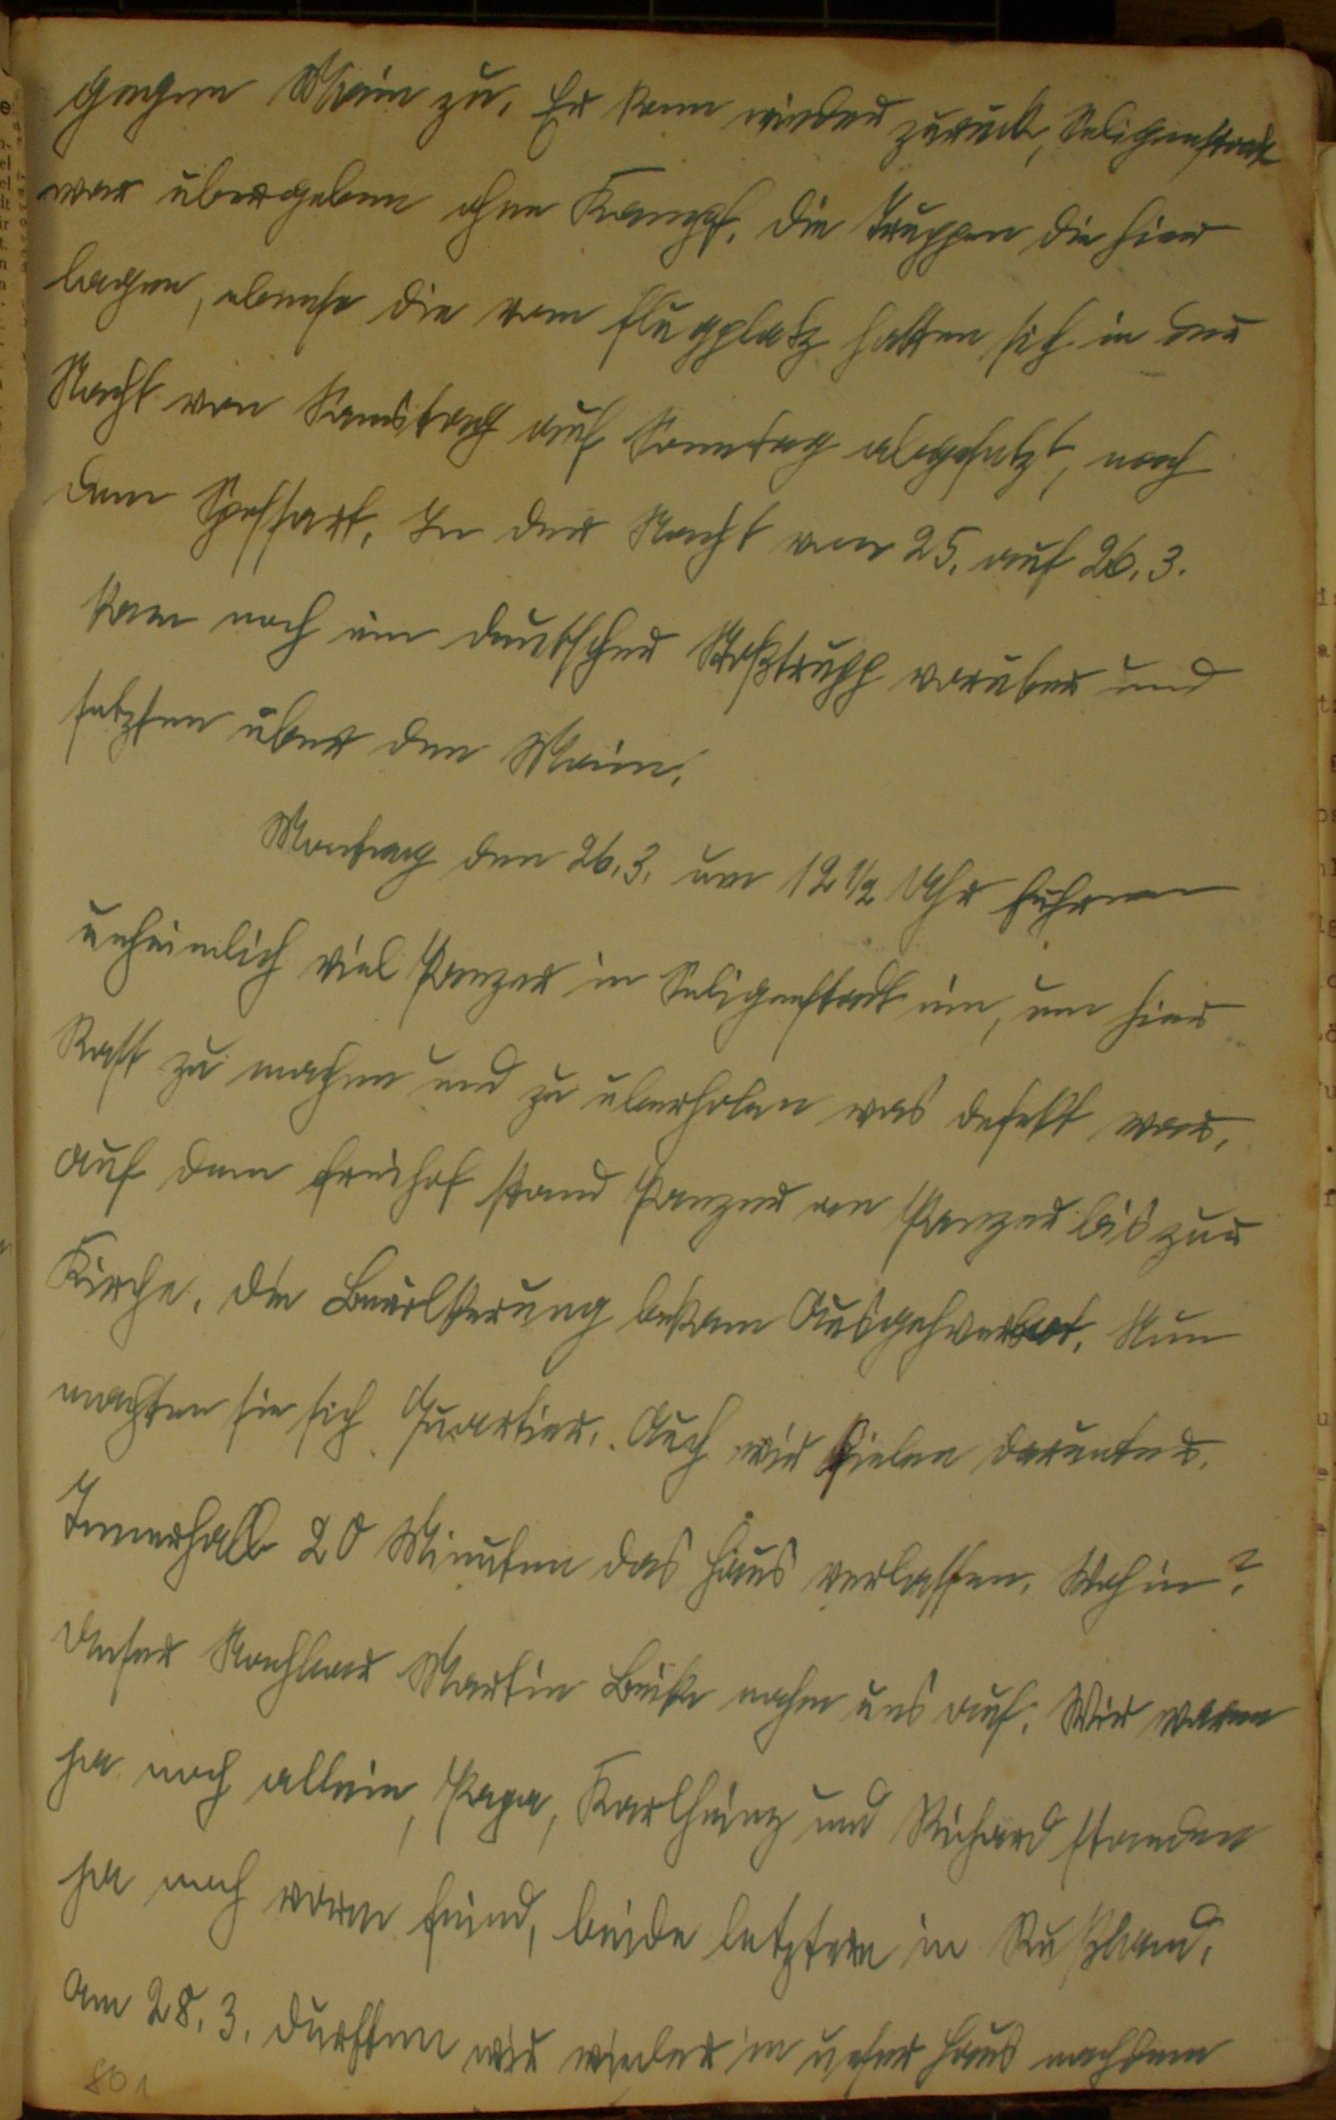 gegen Main zu. Er kam wieder zurück, Seligenstadt
war übergeben ohne Kampf. Die Truppen die hier
lagen, ebenso die vom Flugplatz hatten sich in der
Nacht von Samstag auf Sonntag abgesetzt, nach
dem Spessart. In der Nacht vom 25. auf 26.3.
kam noch ein deutscher Stoßtrupp vorüber und
setzten über den Main.
Montag den 26.3. um 12 1/2 Uhr fuhren
unheimlich viel Panzer in Seligenstadt ein, um hier
Rast zu machen und zu überholen was defekt war.
Auf dem Freihof stand Panzer an Panzer bis zur
Kirche. Die Bevölkerung bekam Ausgehverbot. Nun
machten sie sich Quartier. Auch wir fielen darunter.
Innerhalb 20 Minuten das Haus verlassen. Wohin?
Unser Nachbar Martin nahm uns auf. Wir waren
ja noch allein, Papa, Karlheinz und Richard standen
ja noch vorm Feind, beide letztere in Rußland.
Am 28.3. durften wir wieder in unser Haus nachdem
801